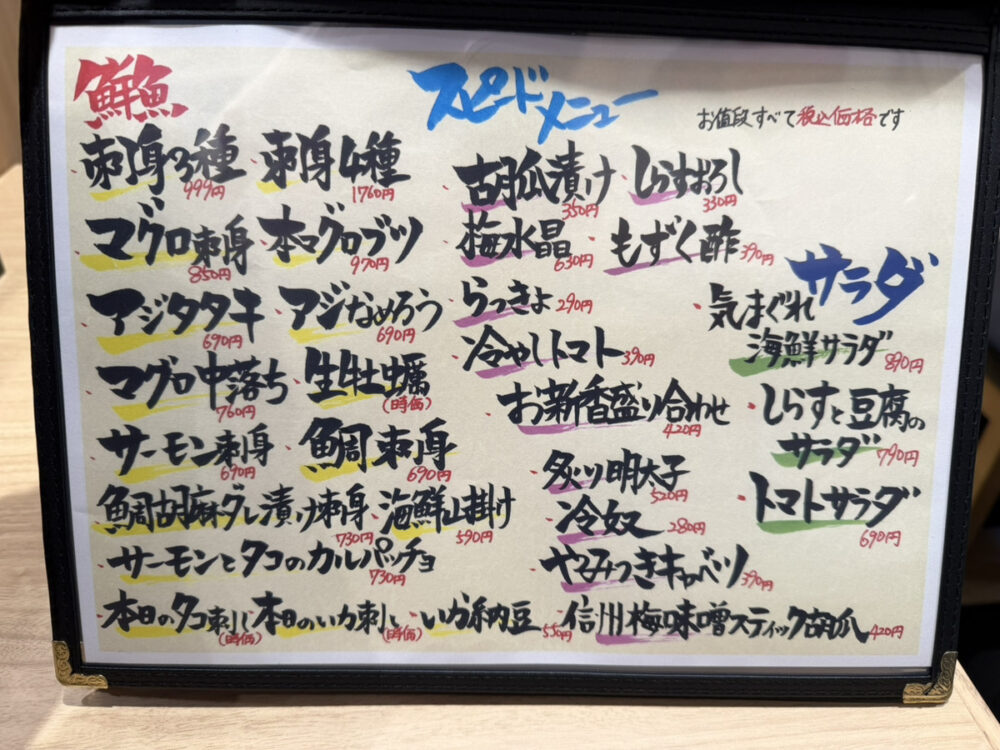 鮮魚
刺身3種 999円
刺身4種 1760円
マグロ刺身 850円
本マグロブツ 970円
アジタタキ 690円
アジなめろう 690円
マグロ中落ち 760円
生牡蠣 (時価)
サーモン刺身 690円
鯛刺身 690円
鯛胡麻タレ漬け刺身 730円
海鮮山掛け 590円
サーモンとタコのカルパッチョ 730円
本日のタコ刺し (時価)
本日のいか刺し (時価)
いか納豆 550円
スピードメニュー
お値段すべて税込価格です
胡瓜漬け 350円
しらすおろし 330円
梅水晶 630円
もずく酢 390円
らっきょ 290円
冷やしトマト 390円
お新香盛り合わせ 420円
炙り明太子 520円
冷奴 280円
やみつきキャベツ 390円
信州梅味噌スティック胡瓜 420円
サラダ
気まぐれ
海鮮サラダ 890円
しらすと豆腐の
サラダ 790円
トマトサラダ 690円